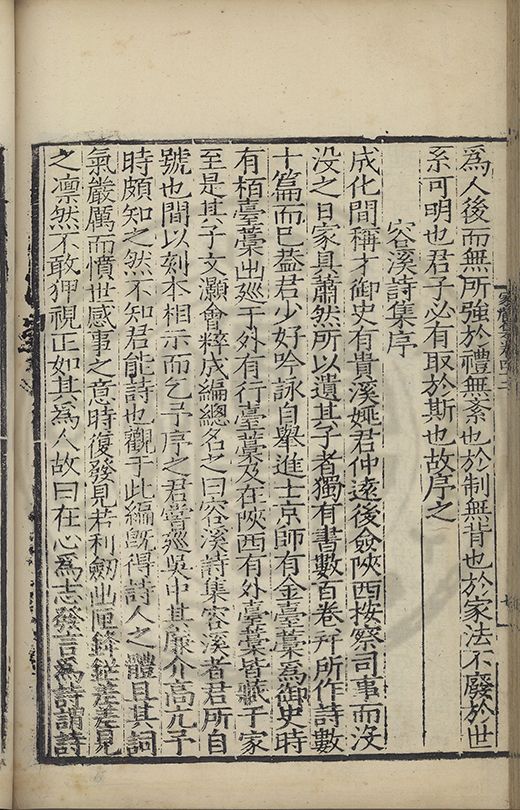 爲人後而無所強於禮無紊也於制無背也於家法不廢於世
系可明也君子必有取於斯也故序之
容溪詩集序
成化間稱才御史有貴溪姚君仲遠後僉陝西按察司事而沒
没之日家具蕭然所以遺其子者獨有書數百卷幷所作詩數
十篇而已葢君少好吟詠自舉進士京師有金臺藁爲御史時
有栢臺藁出廵于外有行臺藁及在陝西有外臺藁皆藏于家
至是其子文灝會粹成編總名之曰容溪詩集容溪者君所自
號也間以刻本相示而乞予序之君嘗廵吳中其廉介高亢予
時頗知之然不知君能詩也觀于此編旣得詩人之體且其詞
氣嚴厲而憤世感事之意時復發見若利劒出匣鋒鋩差差見
之凛然不敢狎視正如其爲人故曰在心爲志發言爲詩謂詩